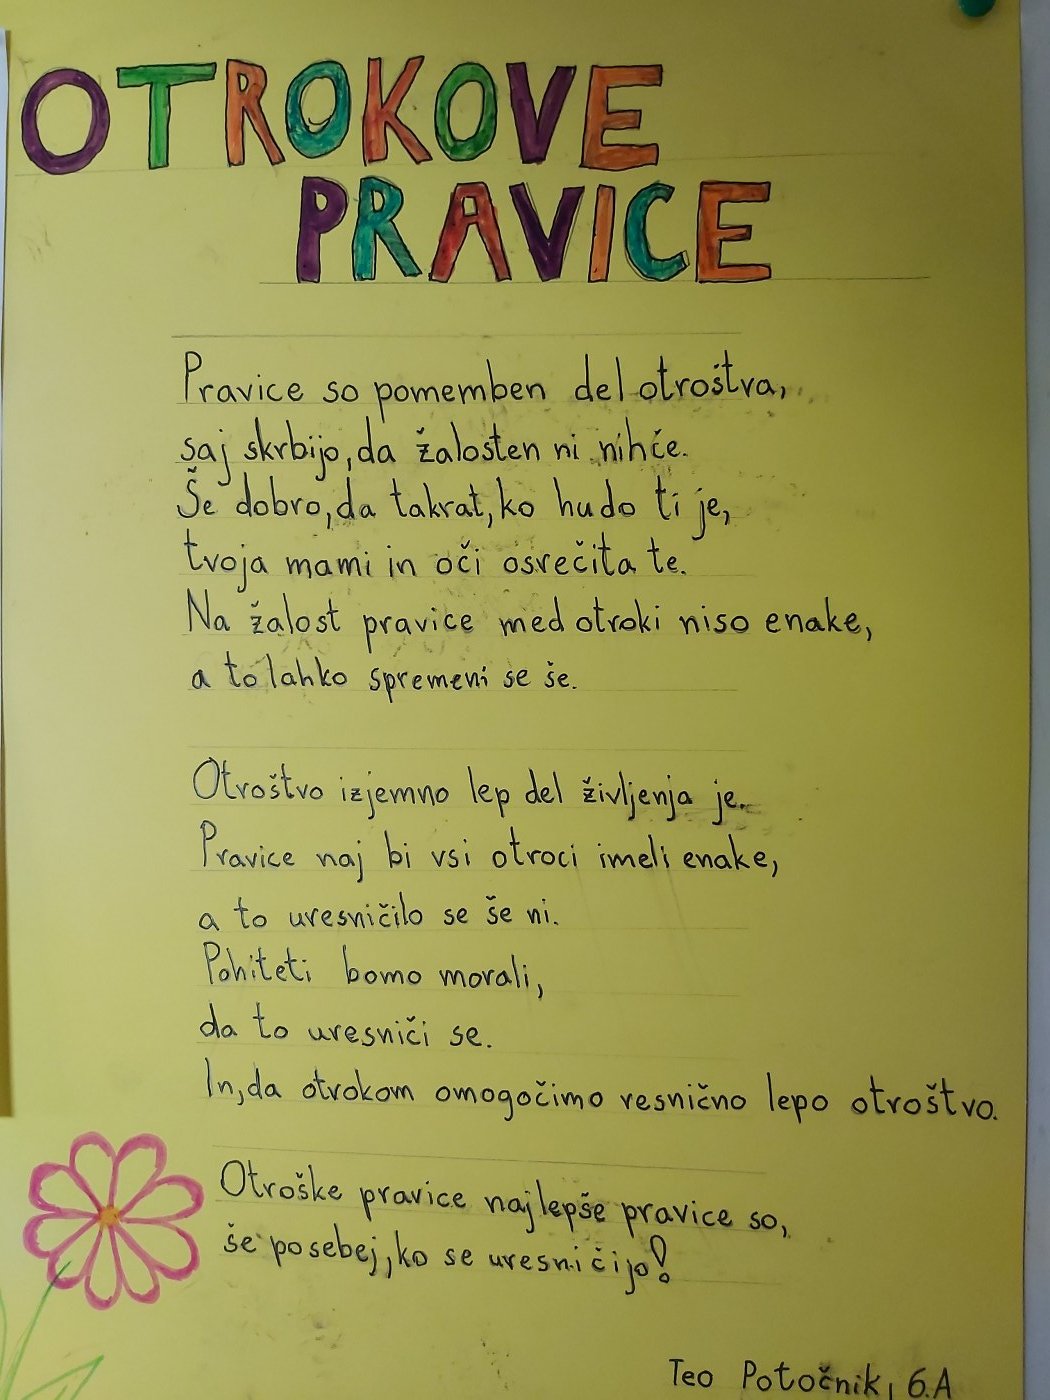 OTROKOVE
PRAVICE
Pravice so pomemben del otroštva,
saj skrbijo, da žalosten ni nihče.
Še dobro, da takrat, ko hudo ti je,
tvoja mami in oči osrečita te.
Na žalost pravice med otroki niso enake,
a to lahko spremeni se še.
Otroštvo izjemno lep del življenja je.
Pravice naj bi vsi otroci imeli enake,
a to uresničilo se še ni.
Pohiteti bomo morali,
da to uresniči se.
In, da otrokom omogočimo resnično lepo otroštvo.
Otroške pravice najlepše pravice so,
še posebej, ko se uresničijo!
Teo Potočnik, 6.A